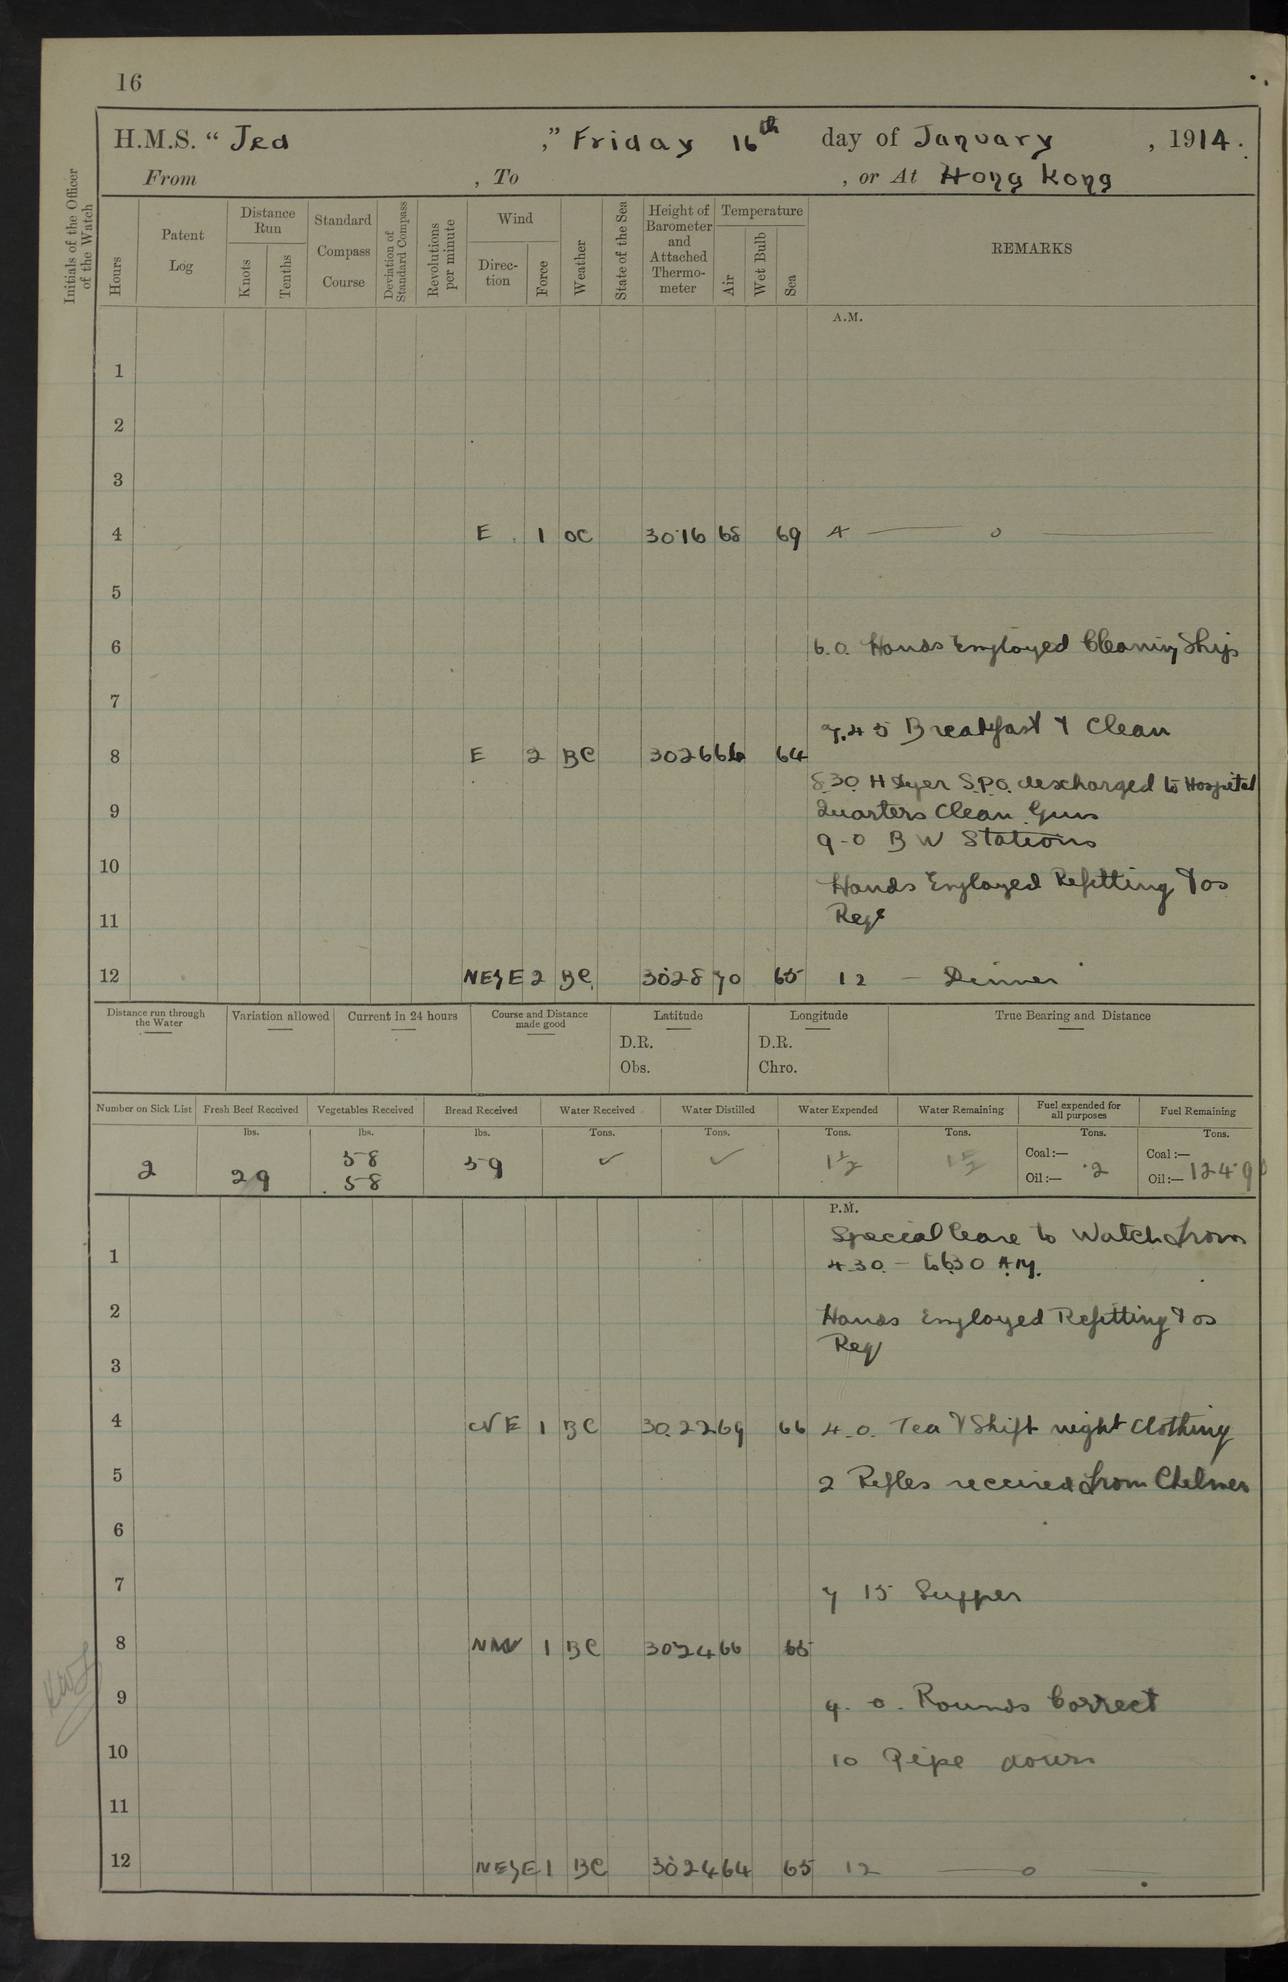 16
H.M.S. “ Jed ,” Friday 16th day of January , 1914.
From , To , or At Hong Kong
Initials of the Officer of the Watch
Hours
Patent Log
Distance Run
Knots
Tenths
Standard Compass Course
Deviation of Standard Compass
Revolutions per minute
Wind
Direc-tion
Force
Weather
State of the Sea
Height of Barometer and Attached Thermo-meter
Temperature
Air
Wet Bulb
Sea
REMARKS
A.M.
1
2
3
4 E 1 OC 30.16 68 69 4 — o —
5
6 6.0. Hands Employed Cleaning Ship
7
7.45 Breakfast & Clean
8 E 2 BC 3026 66 64
8.30 H Dyer S.P.O. discharged to Hospital
9 Quarters Clean Guns
9-0 B W Stations
10 Hands Employed Refitting & as
11 Reqd
12 NE 2 BC 30.28 70 65 12 — Dinner
Distance run through the Water
Variation allowed
Current in 24 hours
Course and Distance made good
Latitude
D.R.
Obs.
Longitude
D.R.
Chro.
True Bearing and Distance
Number on Sick List Fresh Beef Received Vegetables Received Bread Received Water Received Water Distilled Water Expended Water Remaining Fuel expended for all purposes Fuel Remaining
lbs. lbs. lbs. Tons. Tons. Tons. Tons. Tons. Tons.
2 29 58 59 ✓ ✓ 1½ Coal:— Coal:—
58 Oil:— .2 Oil:— 124.9
P.M.
Special leave to Watch from
1 4.30 – to 6.30 A.M.
2 Hands Employed Refitting & as
3 Req
4 NE 1 BC 30.22 69 66 4.0. Tea & Shift night clothing
5 2 Rifles received from Chelmer
6
7 7 15 Supper
8 NNW 1 BC 3024 66 65
9 9.0. Rounds Correct
10 10 Pipe down
11
12 NE 1 BC 30.24 64 65 12 — o —